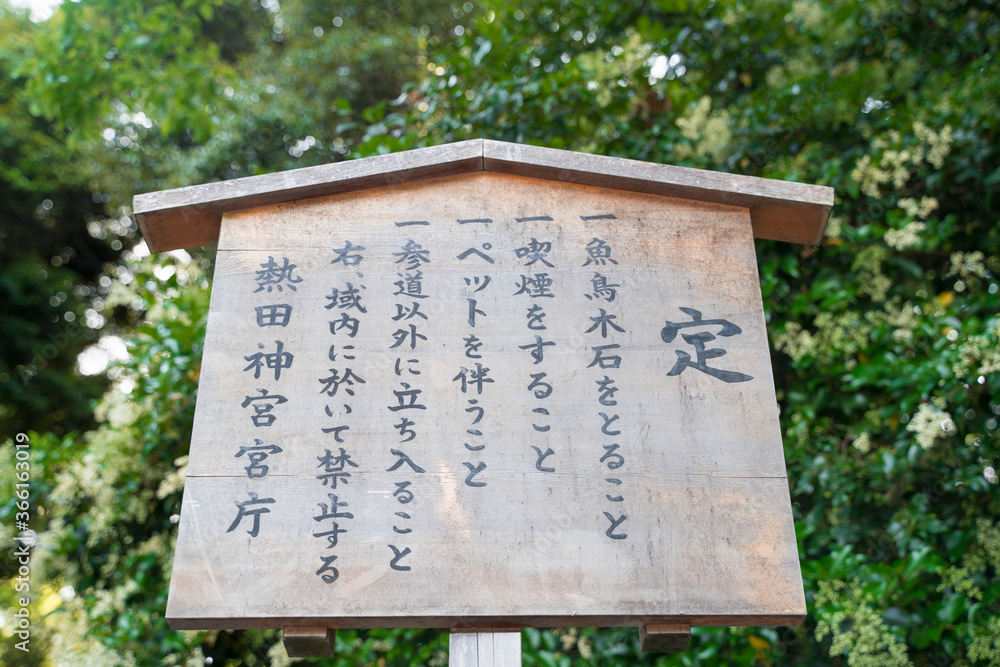 定
一魚鳥木石をとること
一喫煙をすること
一ペットを伴うこと
一参道以外に立ち入ること
右、域内に於いて禁止する
熱田神宮宮庁
Adobe Stock | #366163019